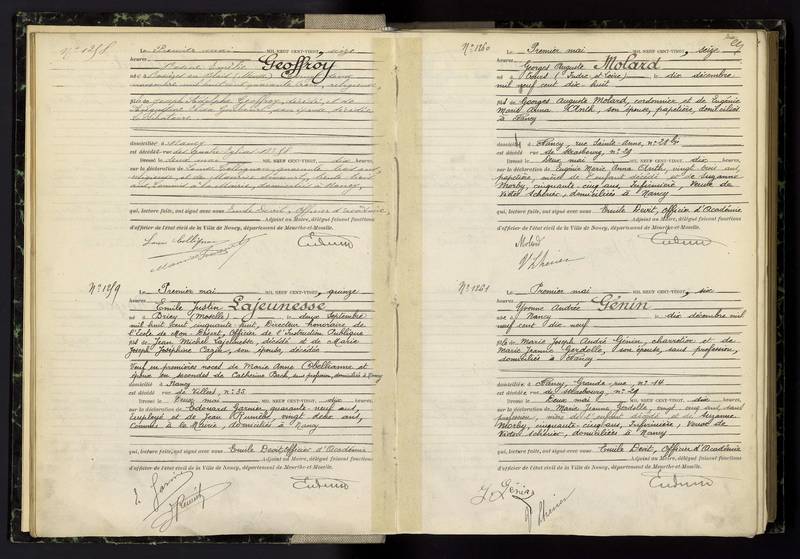 N° 1258
Le Premier mai MIL NEUF CENT-VINGT, seize
heures
Geoffroy
né à (Meuse)
mil huit cent quarante trois, religieuse,
fille de Joseph Geoffroy, décédé et de
son épouse, décédée
Célibataire
domicilié à Nancy
est décédée rue des Quatre Églises, n° 58
Dressé le deux mai MIL NEUF CENT-VINGT, dix heures,
sur la déclaration de Louise quarante trois ans,
religieuse, et de Maurice trente trois
ans, Commis à la Mairie, domiciliés à Nancy,
qui, lecture faite, ont signé avec nous Emile Devit, Officier d'Académie,
Adjoint au Maire, délégué faisant fonctions
d'officier de l'état civil de la Ville de Nancy, département de Meurthe-et-Moselle.
N° 1259
Le Premier mai MIL NEUF CENT-VINGT, quinze
heures
Emile Justin Lajeunesse
né à Briey (Moselle) le douze Septembre
mil huit cent cinquante huit, Directeur honoraire de
l'École de Mon Désert, Officier de l'Instruction Publique
fils de Jean Michel Lajeunesse, décédé et de Marie
Joseph Joséphine son épouse, décédée
Veuf en premières noces de Marie Anne et
époux en secondes de Catherine Bach, sans profession, domiciliée à Nancy
domicilié à Nancy
est décédé rue de Villers, n° 35
Dressé le Deux mai MIL NEUF CENT-VINGT, dix heures,
sur la déclaration de Edouard Garnier, quarante neuf ans,
Employé et de Jean vingt deux ans,
Commis à la Mairie, domiciliés à Nancy
qui, lecture faite, ont signé avec nous Emile Devit Officier d'Académie
Adjoint au Maire, délégué faisant fonctions
d'officier de l'état civil de la Ville de Nancy, département de Meurthe-et-Moselle.
N° 1260
Le Premier mai MIL NEUF CENT-VINGT, seize
heures
Georges Auguste Molard
né à Tours (Indre et Loire) le dix décembre
mil neuf cent dix huit
fils de Georges Auguste Molard, cordonnier et de Eugénie
Marie Anna son épouse, papetière, domiciliés
à Nancy
domicilié à Nancy, rue Sainte-Anne, n° 28 bis
est décédé rue de Strasbourg, n° 29
Dressé le Deux mai MIL NEUF CENT-VINGT, dix heures,
sur la déclaration de Eugénie Marie Anna vingt trois ans,
papetière, mère de l'enfant décédé et de Suzanne
Morby, cinquante cinq ans, Infirmière, Veuve de
Victor Scheiner, domiciliées à Nancy
qui, lecture faite, ont signé avec nous Emile Devit, Officier d'Académie
Adjoint au Maire, délégué faisant fonctions
d'officier de l'état civil de la Ville de Nancy, département de Meurthe-et-Moselle.
Molard
N° 1261
Le Premier mai MIL NEUF CENT-VINGT, six
heures
Yvonne Andrée Génin
née à Nancy le dix décembre mil
neuf cent dix neuf
fille de Marie Joseph André Génin, charretier et de
Marie Jeanne Gérdolle, son épouse, sans profession,
domiciliés à Nancy
domiciliée à Nancy, Grande-rue, n° 14
est décédée rue de Strasbourg, n° 29
Dressé le Deux mai MIL NEUF CENT-VINGT, dix heures,
sur la déclaration de Marie Jeanne Gérdolle, vingt cinq ans, sans
profession, mère de l'enfant décédé et de Suzanne
Morby, cinquante cinq ans, Infirmière, Veuve de
Victor Scheiner, domiciliées à Nancy
qui, lecture faite, ont signé avec nous Emile Devit, Officier d'Académie
Adjoint au Maire, délégué faisant fonctions
d'officier de l'état civil de la Ville de Nancy, département de Meurthe-et-Moselle.
Génin